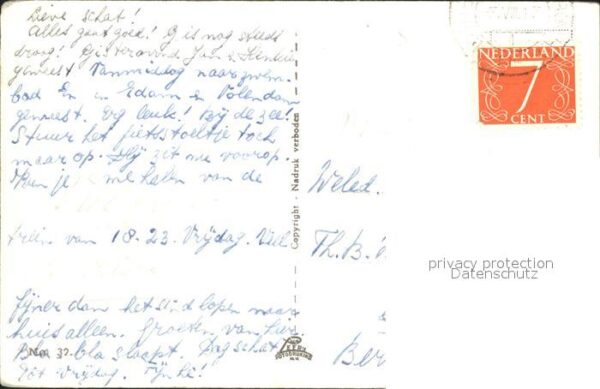 Lieve schat!
Alles gaat goed! 't is nog steeds
droog! Gisteravond Jan
geweest Vanmiddag naar zwem-
bad En in Edam en Volendam
geweest. Erg leuk! bij de zee!
Stuur het fietsstoeltje toch
maar op. Hij zit nu voorop.
Kun je me halen van de
trein van 18.23. Vrijdag. Veel
fijner dan het eind lopen naar
huis alleen. Groeten van hier
Bla bla slaapt. Dag schat
tot vrijdag.
No. 3
Copyright - Nadruk verboden
NEDERLAND
7
CENT
Weled.
Th. B.
Ber
privacy protection
Datenschutz